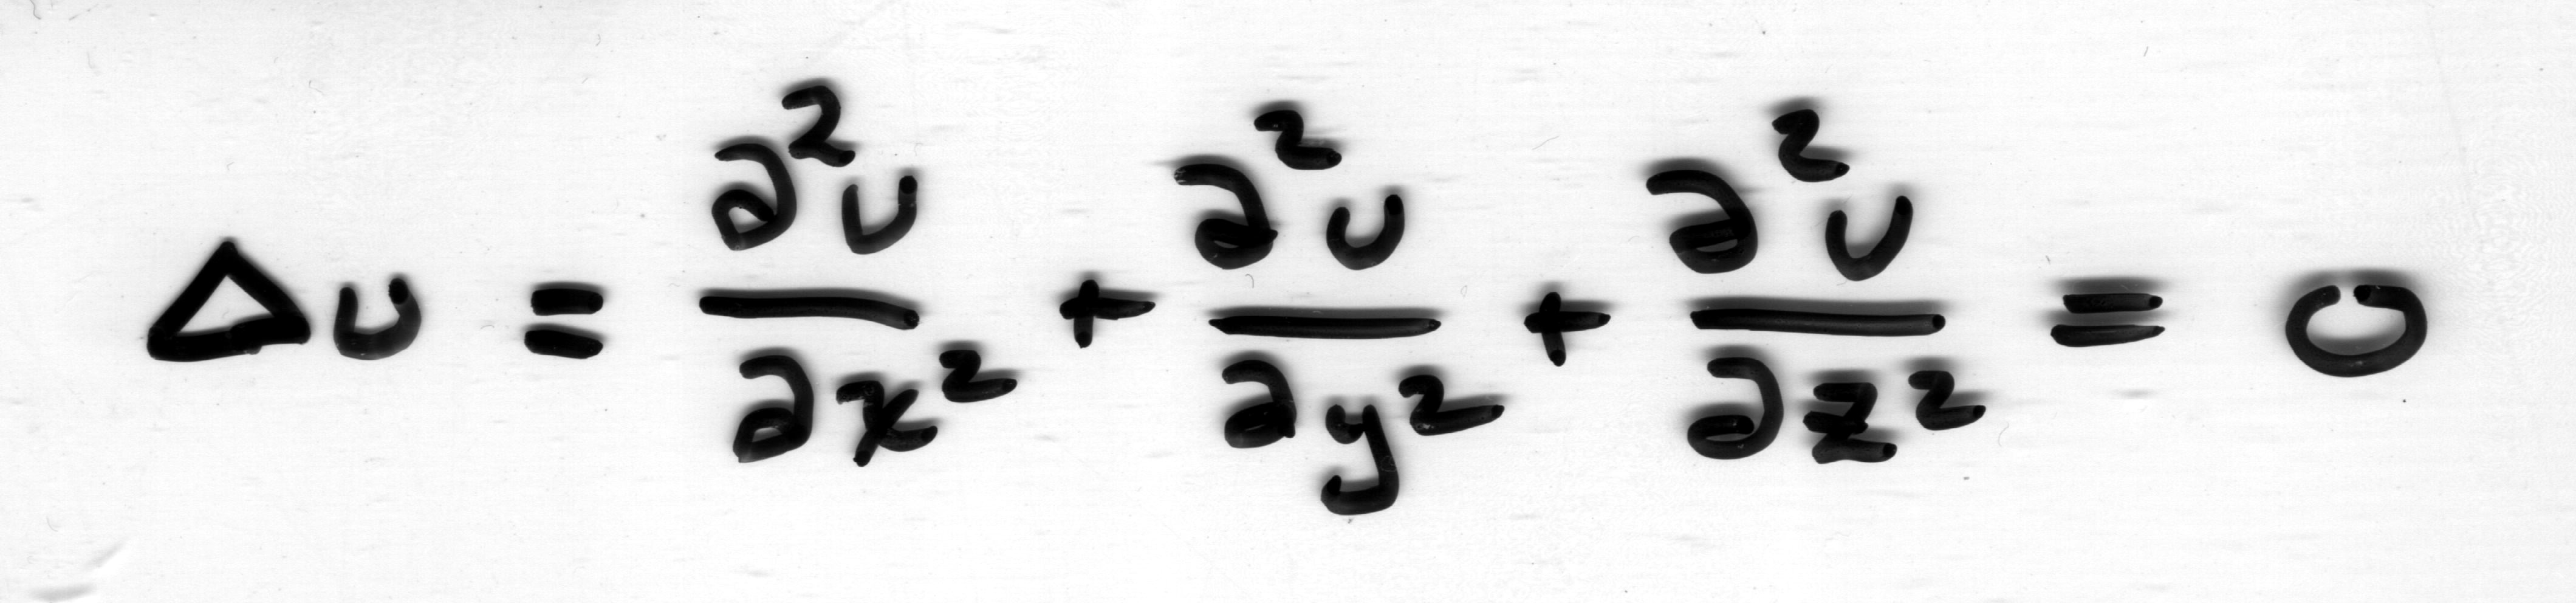 Δu = ∂²u/∂x² + ∂²u/∂y² + ∂²u/∂z² = 0